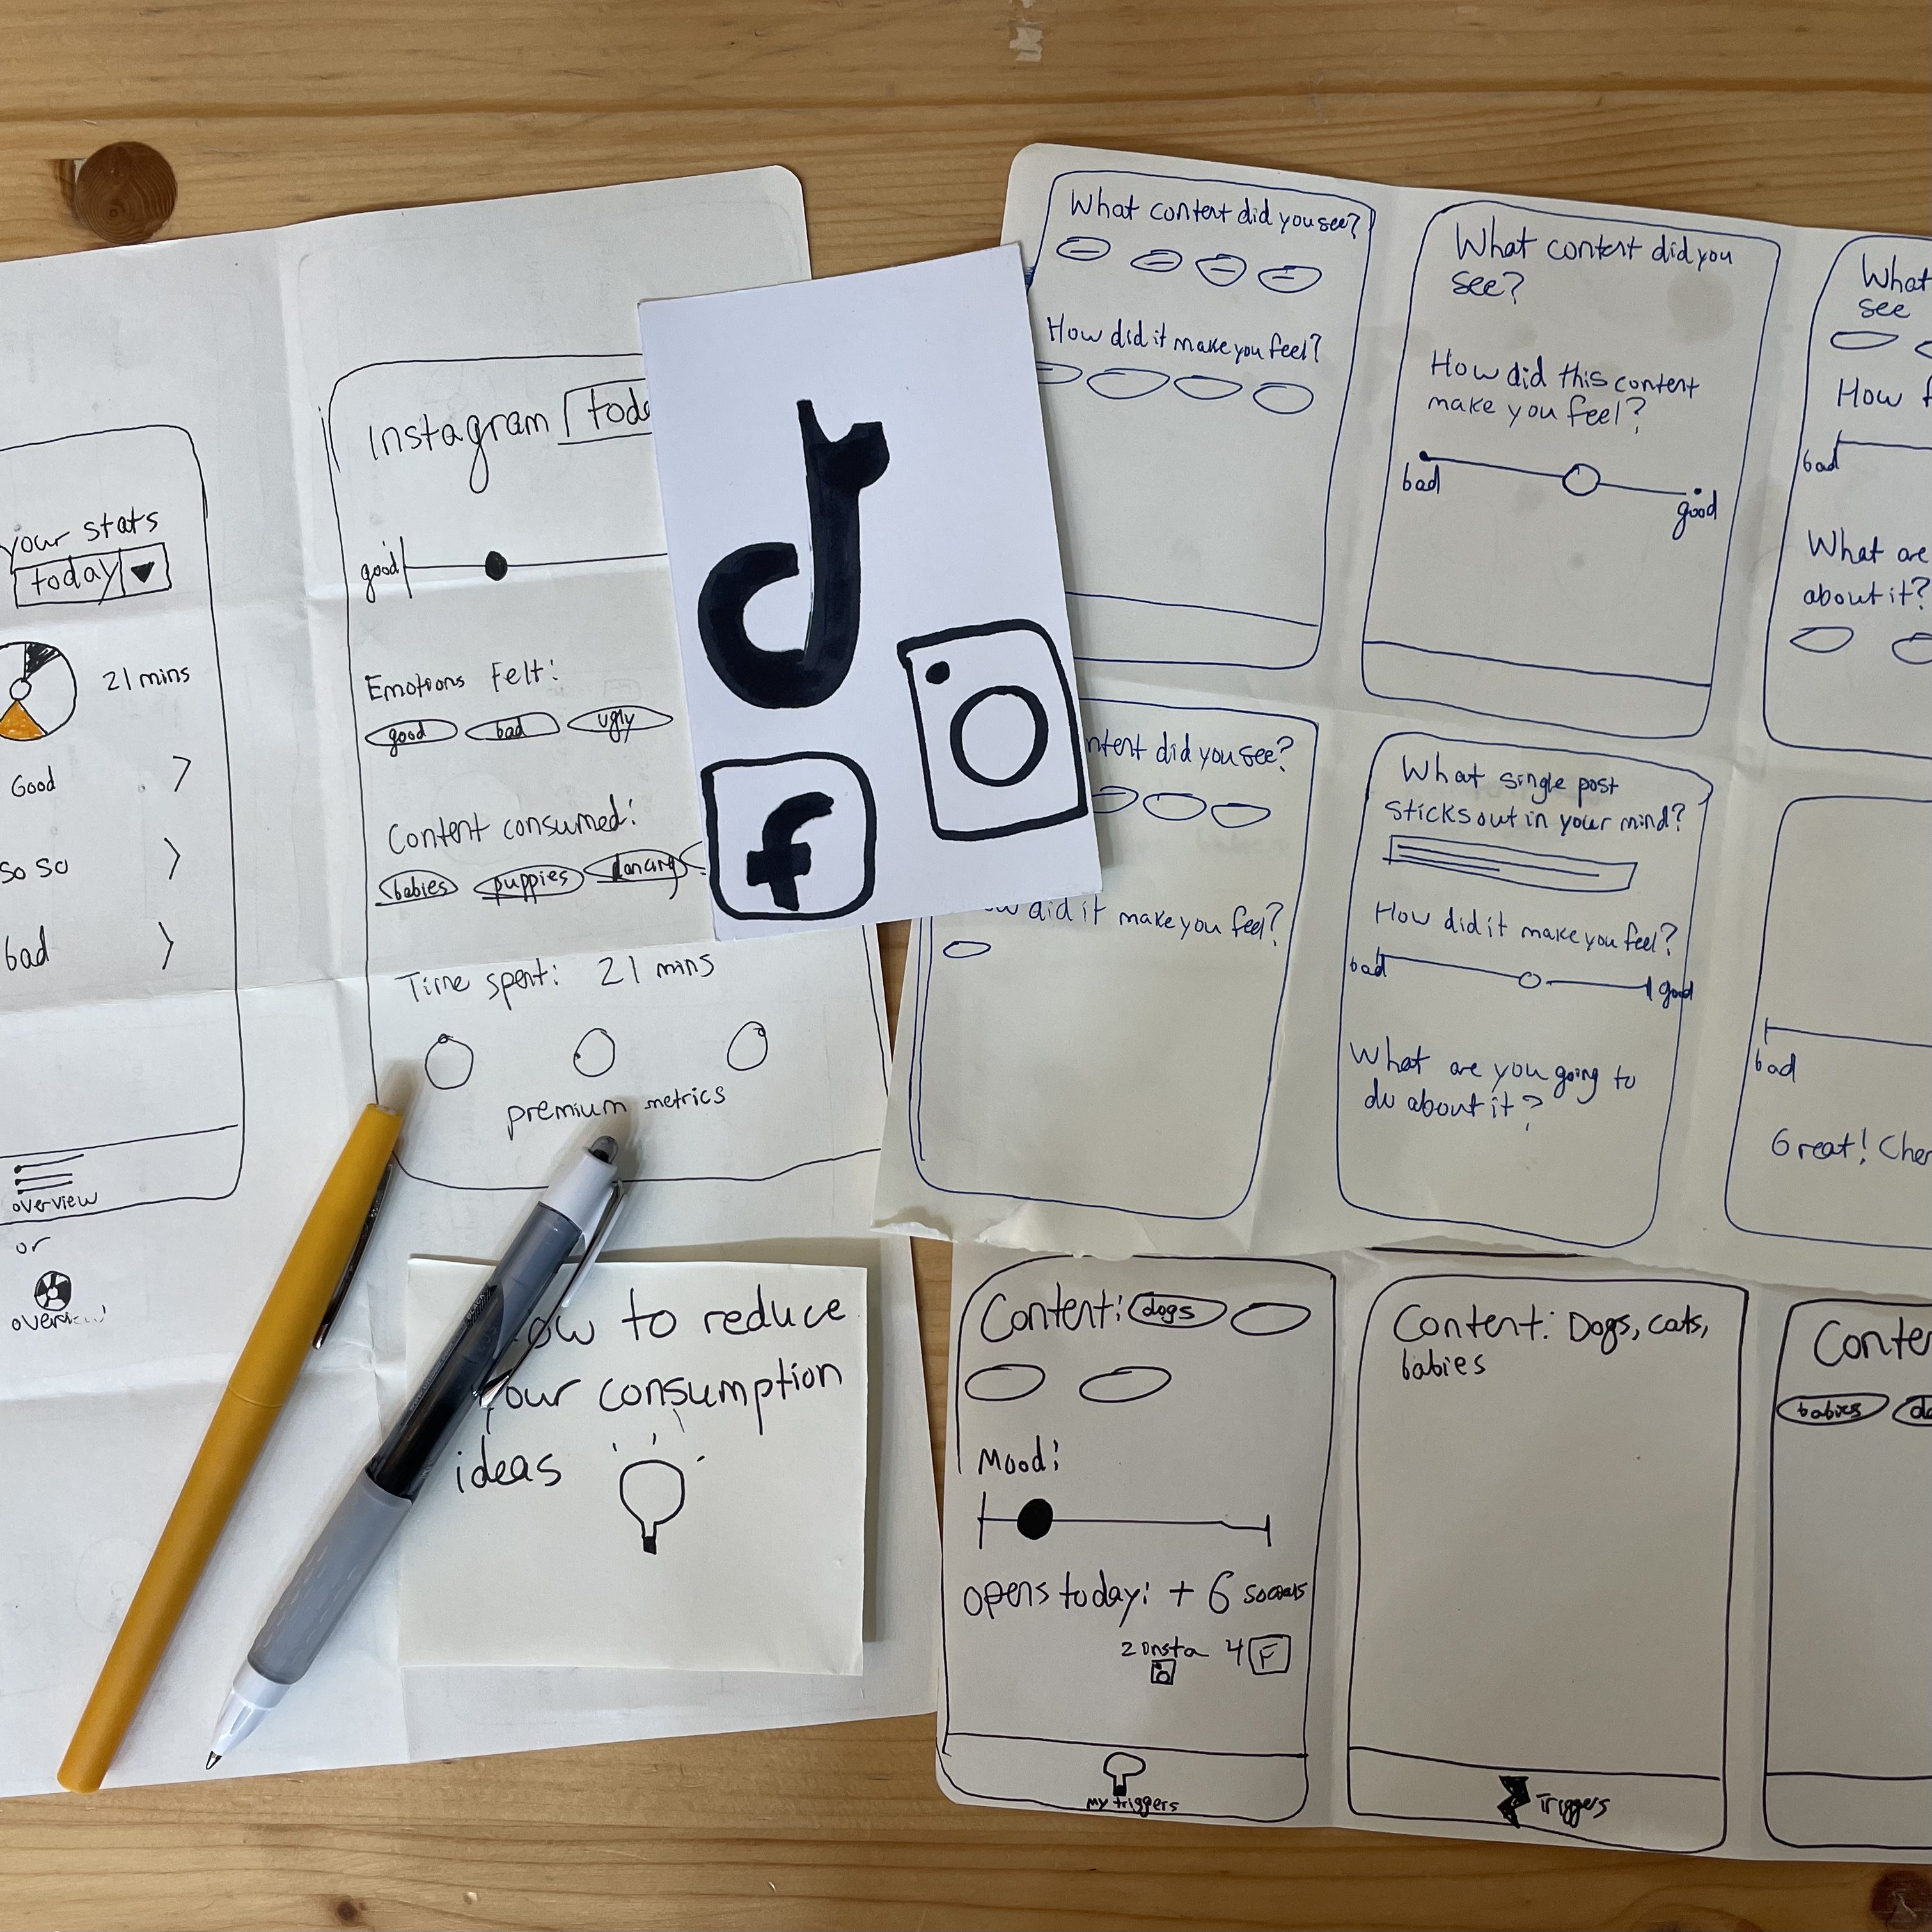 your stats
today
21 mins
Good
so so
bad
overview
or
Instagram
good
Emotions Felt:
good bad ugly
Content consumed:
babies puppies dancing
Time spent: 21 mins
premium metrics
to reduce
consumption
ideas
f
What content did you see?
How did it make you feel?
What content did you
see?
How did this content
make you feel?
bad
good
What
see
How
bad
What are
about it?
content did you see?
did it make you feel?
What single post
sticks out in your mind?
How did it make you feel?
bad good
What are you going to
do about it?
bad
Great!
Content: dogs
Mood:
opens today: + 6
2 insta 4 F
my triggers
Content: Dogs, cats,
babies
Triggers
babies